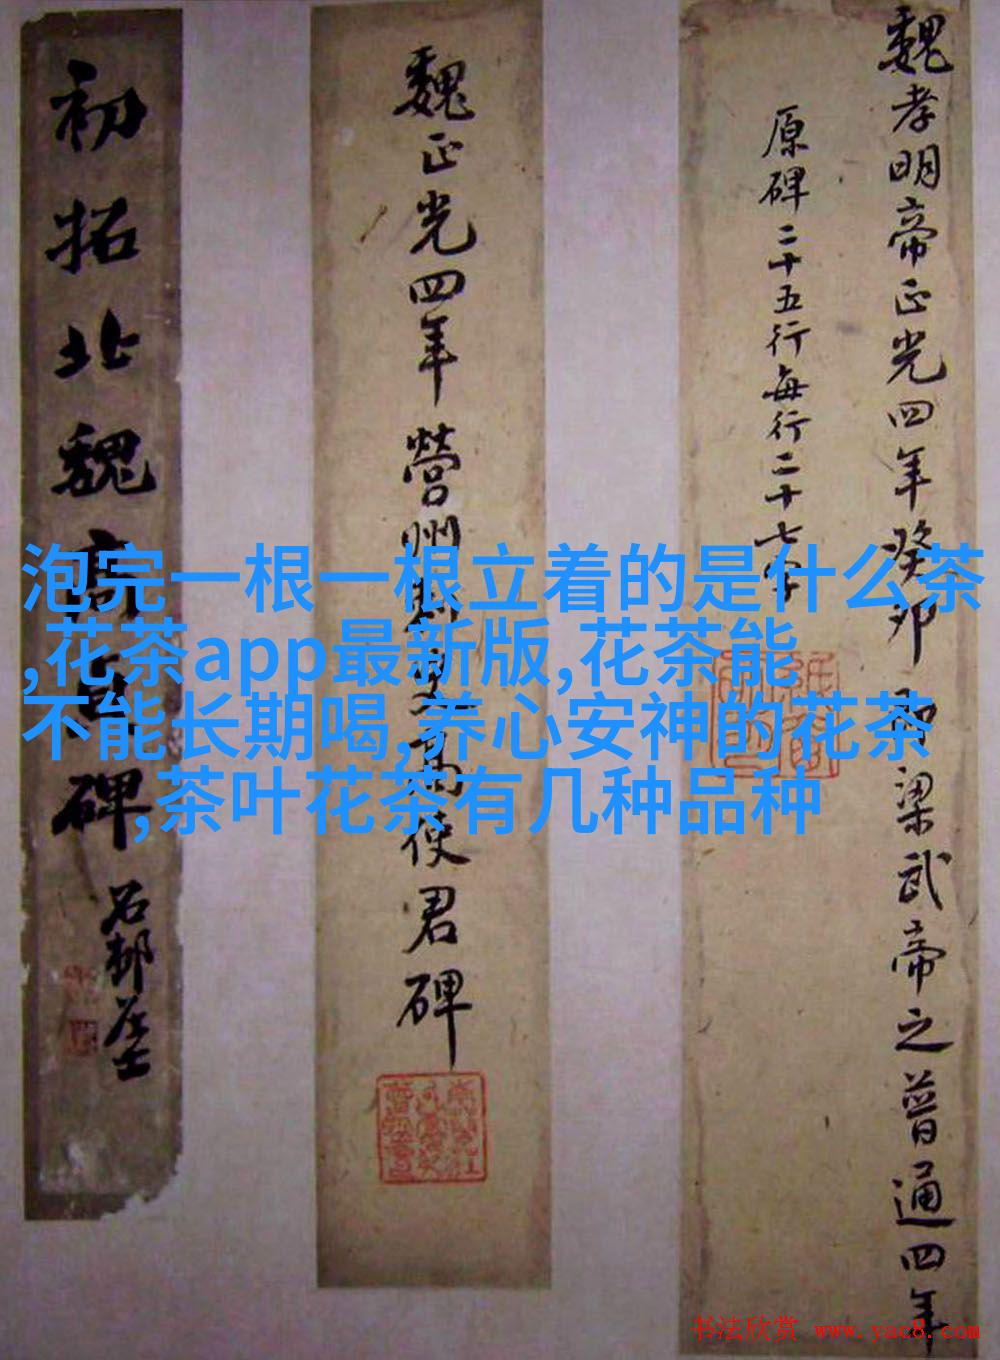 魏孝明帝正光四年癸卯即梁武帝之普通四年
原碑二十五行每行二十七字
魏正光四年營州刺史高使君碑
初拓北魏高貞碑
石邨居士
泡完一根一根立着的是什么茶
,花茶app最新版,花茶能
不能长期喝,养心安神的花茶
,茶叶花茶有几种品种
书法欣赏 www.yac8.com